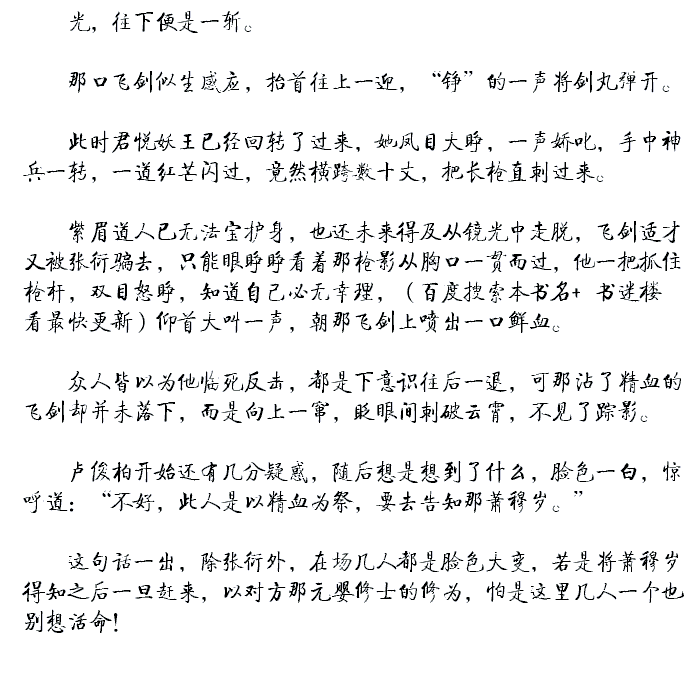 光，往下便是一斩。
那口飞剑似生感应，抬首往上一迎，“铮”的一声将剑丸弹开。
此时君悦妖王已经回转了过来，她凤目大睁，一声娇叱，手中神
兵一转，一道红芒闪过，竟然横跨数十丈，把长枪直刺过来。
紫眉道人已无法宝护身，也还未来得及从镜光中走脱，飞剑适才
又被张衍骗去，只能眼睁睁看着那枪影从胸口一贯而过，他一把抓住
枪杆，双目怒睁，知道自己必无幸理，（百度搜索本书名+ 书迷楼
看最快更新）仰首大叫一声，朝那飞剑上喷出一口鲜血。
众人皆以为他临死反击，都是下意识往后一退，可那沾了精血的
飞剑却并未落下，而是向上一窜，眨眼间刺破云霄，不见了踪影。
卢俊柏开始还有几分疑惑，随后想是想到了什么，脸色一白，惊
呼道：“不好，此人是以精血为祭，要去告知那萧穆岁。”
这句话一出，除张衍外，在场几人都是脸色大变，若是将萧穆岁
得知之后一旦赶来，以对方那元婴修士的修为，怕是这里几人一个也
别想活命！